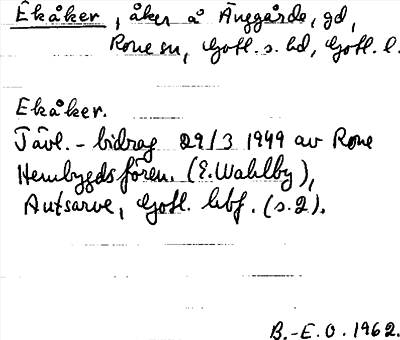 Ekåker, åker å Änggårde, gd,
Rone sn, Gotl. s. hd, Gotl. l.
Ekåker.
Tävl. - bidrag 29/3 1949 av Rone
Hembygdsfören. (E. Wahlby),
Autsarve, Gotl. hbf. (s. 2).
B.-E. O. 1962.